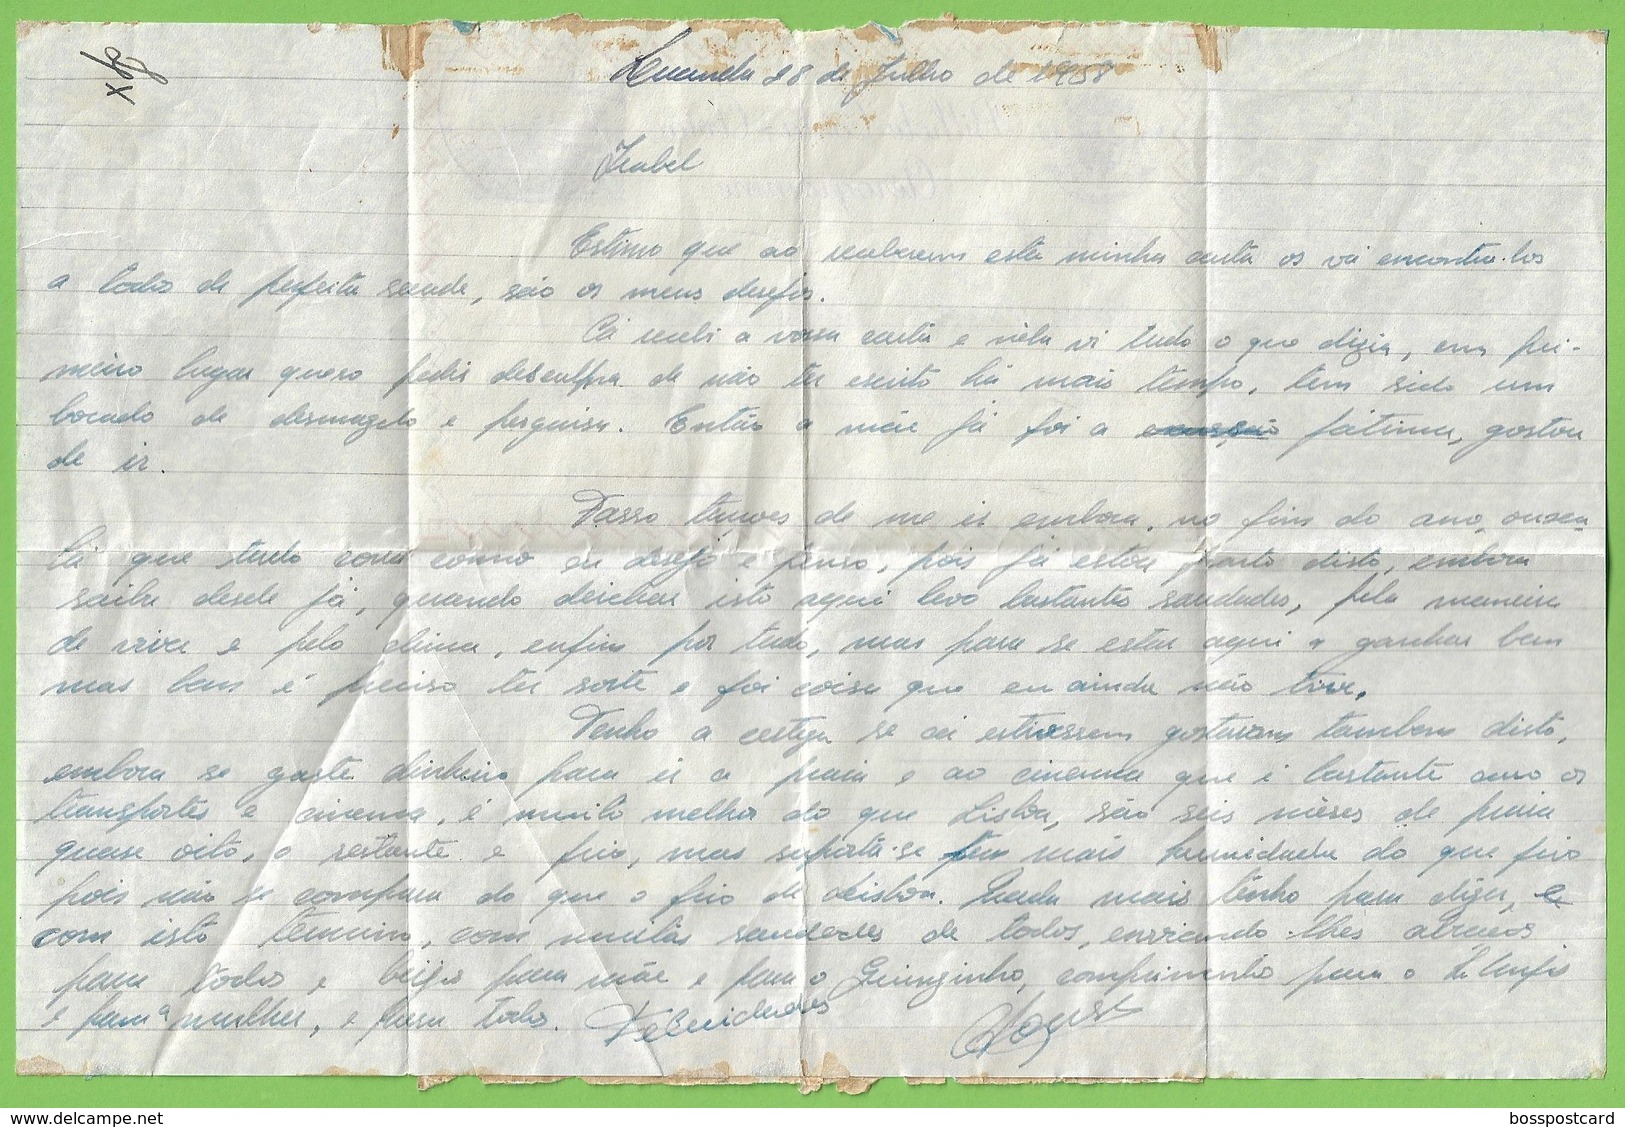 Luanda 28 de Julho de 1958
Isabel
Estimo que ao receberem esta minha carta os vá encontra-los
a todos de perfeita saude, são os meus desejos.
Cá recebi a vossa carta e nela vi tudo o que dizia, em pri-
meiro lugar quero pedir desculpa de não ter escrito há mais tempo, tem sido um
bocado de desmazelo e preguisa. Então a mãe já foi a Fátima, gostou
de ir.
Passo tenções de me ir embora, no fim do ano,
que tudo corra como eu desejo e penso, pois já estou farto disto, embora
saiba desde já, quando deichar isto aqui levo bastantes saudades, pela maneira
de viver e pelo clima, enfim por tudo, mas para se estar aqui a ganhar bem
mas bem é preciso ter sorte e foi coisa que eu ainda não tive.
Tenho a certeza se cá estivessem gostavam tambem disto,
embora se gaste dinheiro para ir a praia e ao cinema que é bastante caro os
transportes e cinema, é muito melhor do que Lisboa, são seis mêses de praia
quase oito, o restante é frio, mas suporta-se tem mais humidade do que frio
pois não se compara do que o frio de Lisboa. Nada mais tenho para dizer, e
com isto termino, com muitas saudades de todos, enviando-lhes abraços
para todos e beijos para mãe e para o, comprimentos para o
e para a mulher, e para todos. Felecidades
bosspostcard